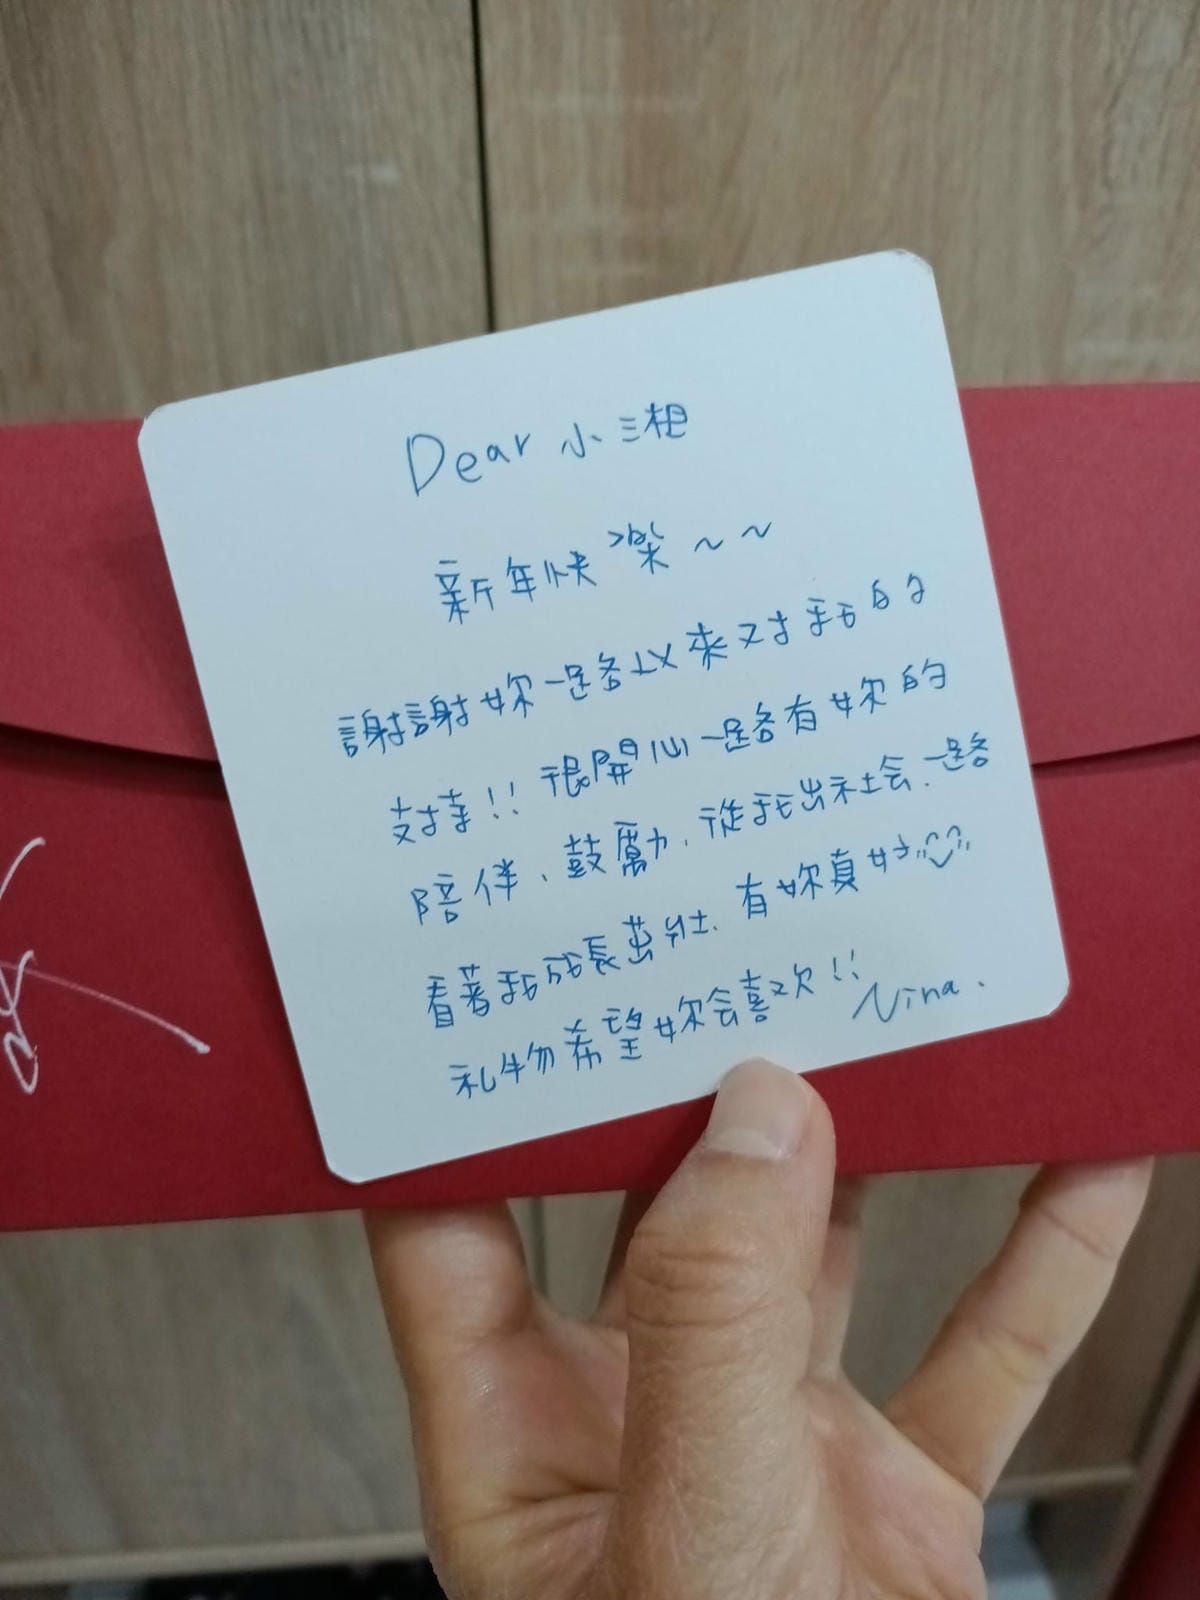 Dear 小三相
新年快樂～～
謝謝妳一路以來对我的
支持!! 很開心一路有妳的
陪伴、鼓勵,從我出社会.一路
看著我成長茁壯.有妳真好
礼物希望妳会喜欢!! Nina.